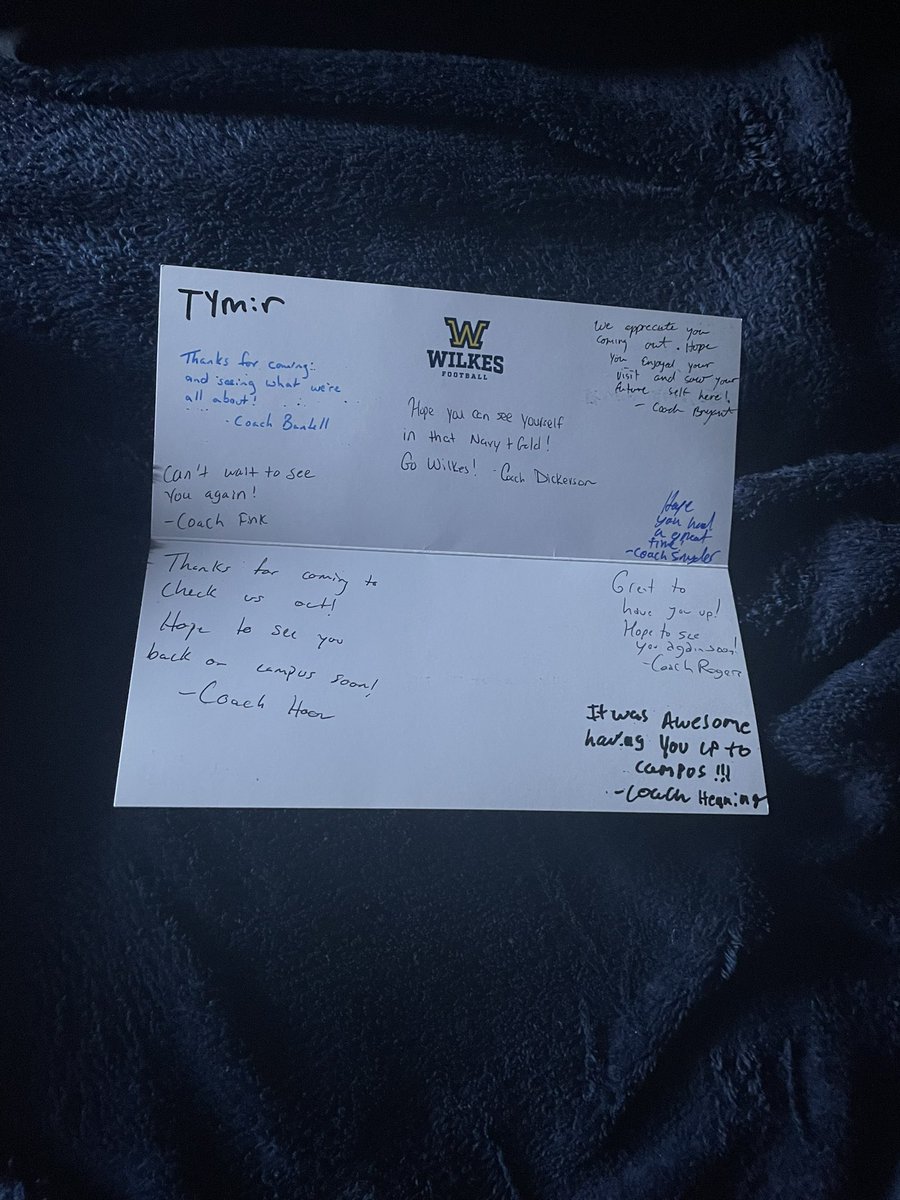 TYmir
W
WILKES
FOOTBALL
Thanks for coming
and seeing what we're
all about!
- Coach
Can't wait to see
you again!
- Coach Fink
Hope you can see yourself
in that Navy + Gold!
Go Wilkes! - Coach Dickerson
We apprecate you
coming out. Hope
you enjoyed your
visit and saw your
future self here!
- Coach Bryant
Hope
you had
a great
time!
- Coach Snyder
Thanks for coming to
check us out!
Hope to see you
back on campus soon!
- Coach
Great to
have you up!
Hope to see
you again soon!
- Coach Rogers
It was Awesome
having you up to
campus!!!
- Coach Henning